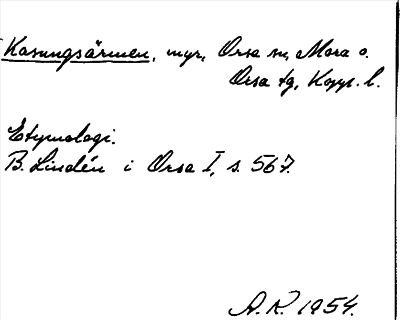 Kasungsärmen, myr, Orsa sn, Mora o.
Orsa tg, Kopp. l.
Etymologi.
B. Lindén i Orsa I, s. 567.
A.K. 1954.